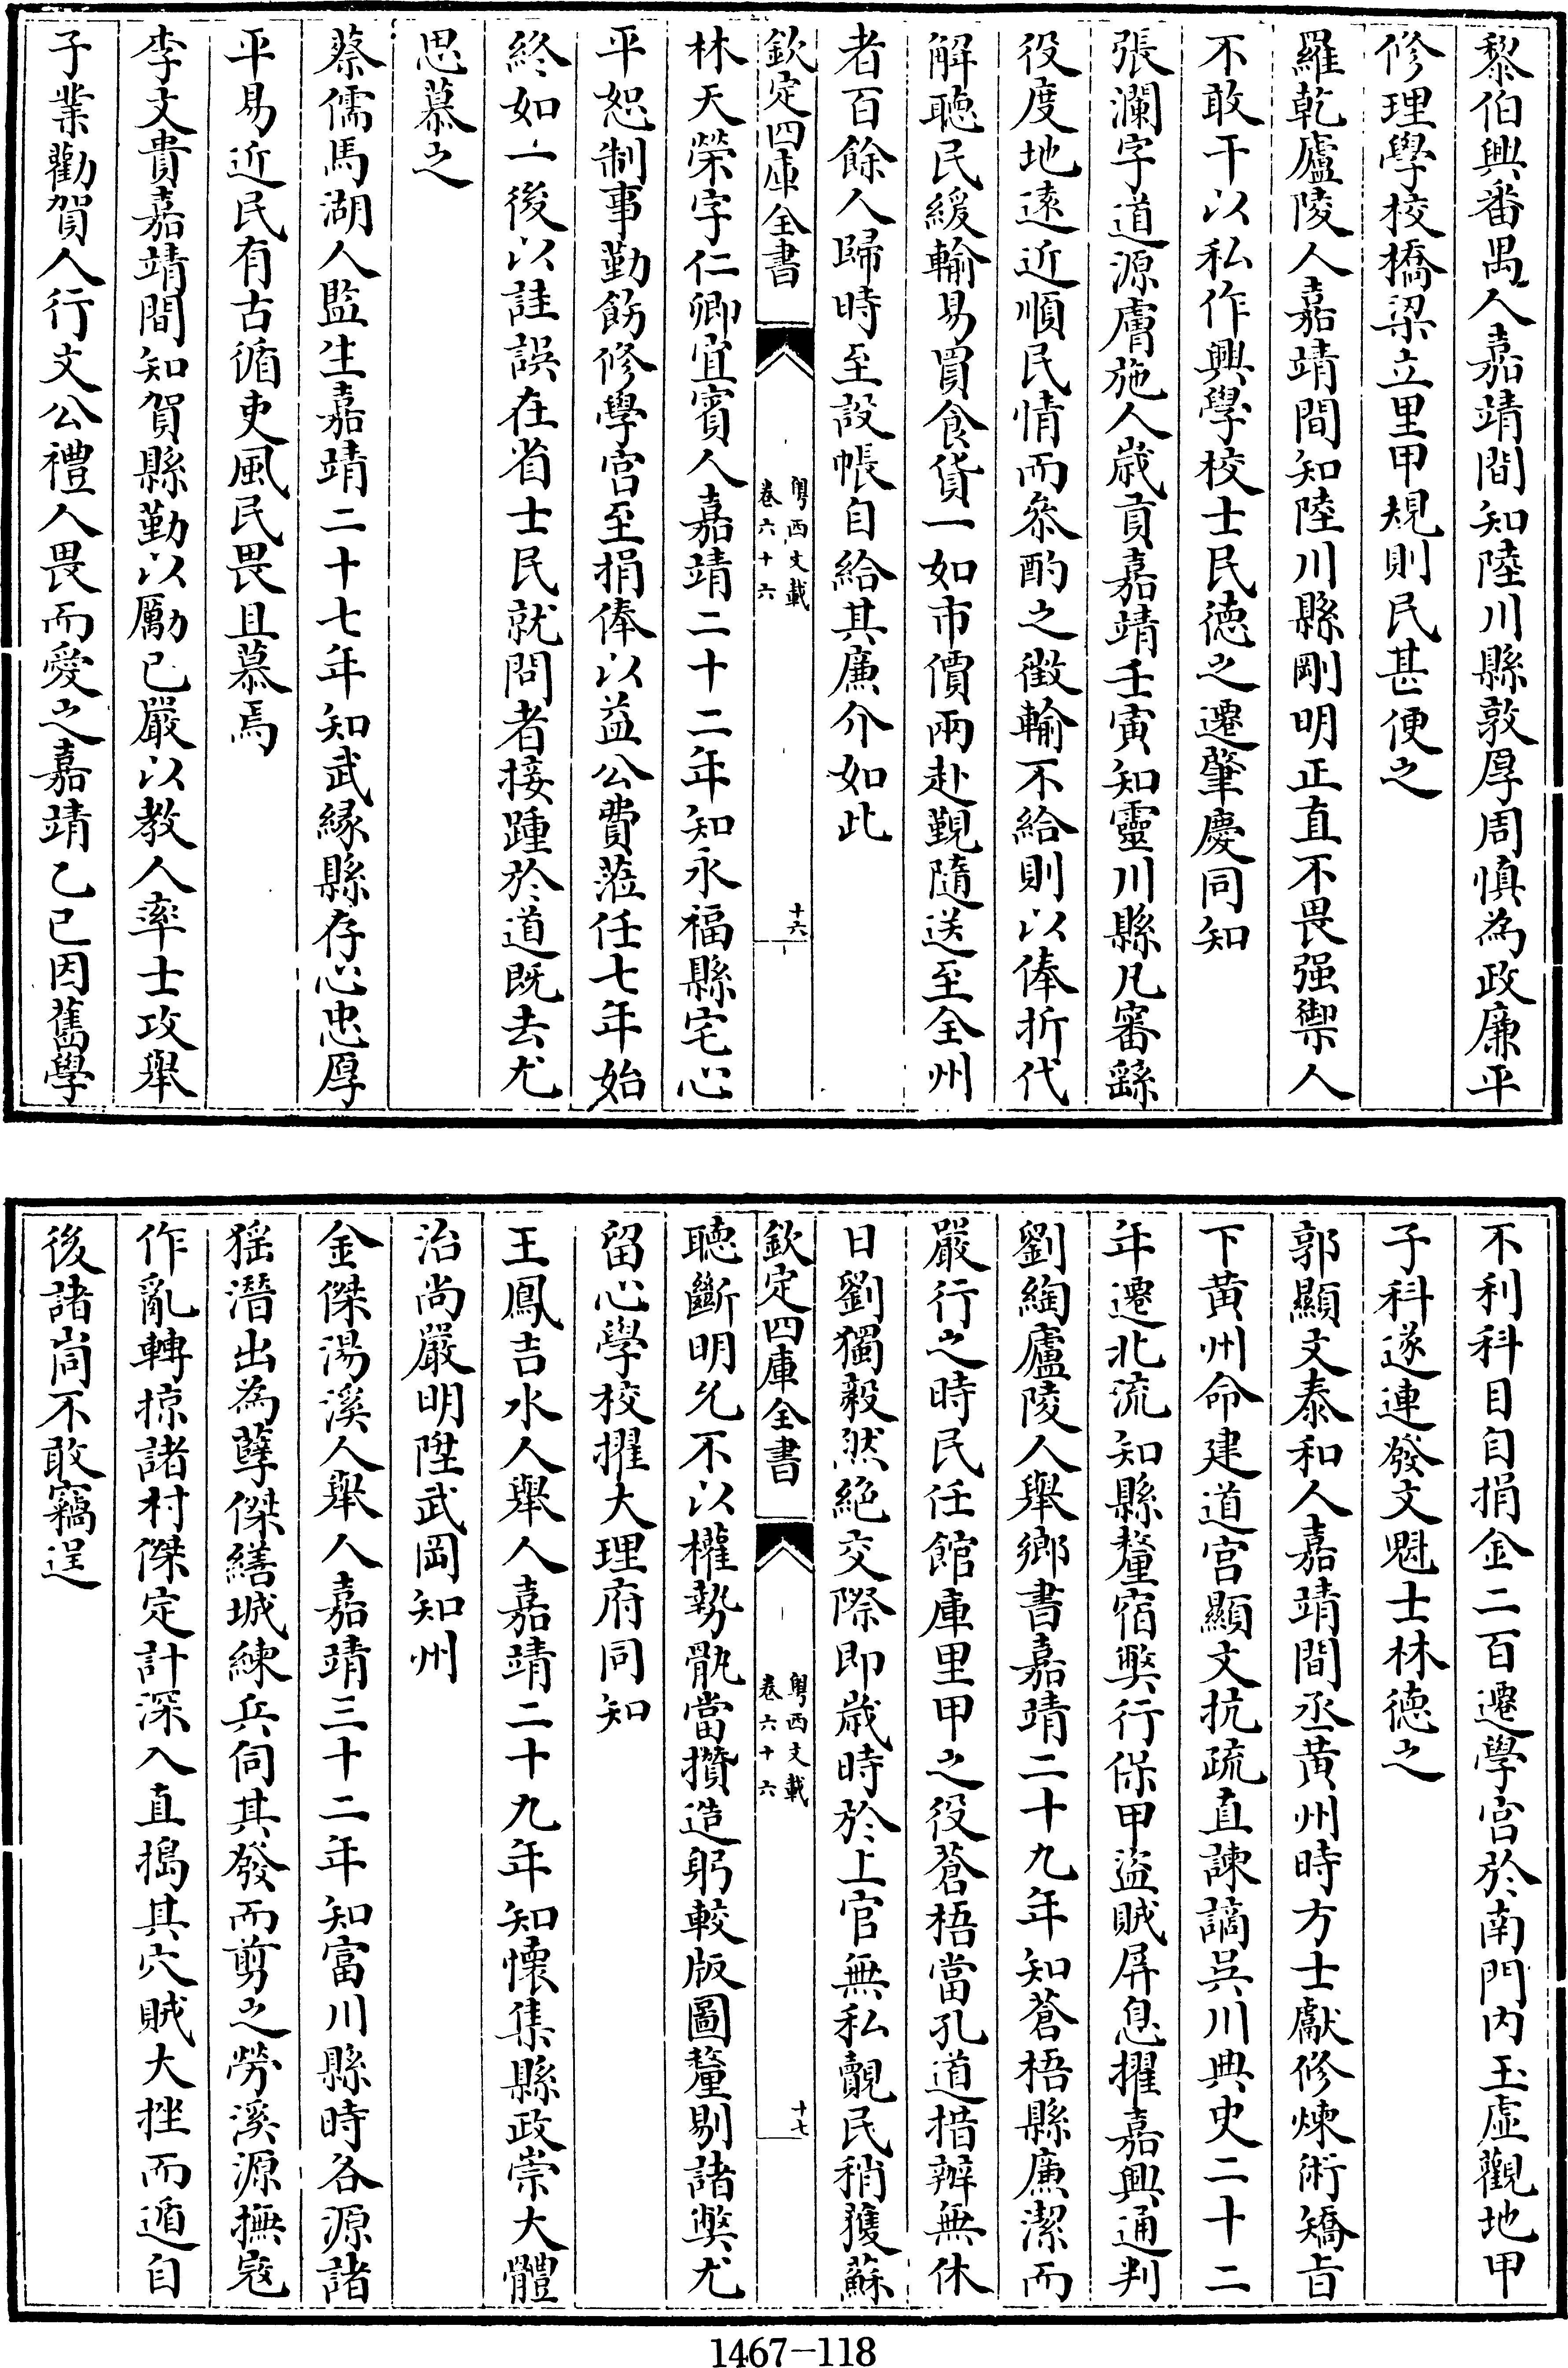 黎伯興番禺人嘉靖間知陸川縣敦厚周慎為政廉平
修理學校橋梁立里甲規則民甚便之
羅乾廬陵人嘉靖間知陸川縣剛明正直不畏强禦人
不敢干以私作興學校士民德之遷肇慶同知
張瀾字道源膚施人歲貢嘉靖壬寅知靈川縣凡審繇
役度地遠近順民情而叅酌之徵輸不給則以俸折代
解聽民緩輸易買食貨一如市價兩赴覲隨送至全州
者百餘人歸時至設帳自給其廉介如此
欽定四庫全書
粤西文載
卷六十六
十六
林天榮字仁卿宜賓人嘉靖二十二年知永福縣宅心
平恕制事勤飭修學宮至捐俸以益公費蒞任七年始
終如一後以詿誤在省士民就問者接踵於道既去尤
思慕之
蔡儒馬湖人監生嘉靖二十七年知武緣縣存心忠厚
平易近民有古循吏風民畏且慕焉
李文貴嘉靖間知賀縣勤以勵己嚴以教人率士攻舉
子業勸賀人行文公禮人畏而愛之嘉靖乙巳因舊學
不利科目自捐金二百遷學宮於南門内玉虛觀地甲
子科遂連發文魁士林德之
郭顯文泰和人嘉靖間丞黃州時方士獻修煉術矯旨
下黃州命建道宮顯文抗疏直諫謫吳川典史二十二
年遷北流知縣釐宿獘行保甲盜賊屏息擢嘉興通判
劉綯廬陵人舉鄉書嘉靖二十九年知蒼梧縣廉潔而
嚴行之時民任館庫里甲之役蒼梧當孔道措辦無休
日劉獨毅然絕交際即歲時於上官無私覿民稍獲蘇
欽定四庫全書
粤西文載
卷六十六
十七
聽斷明允不以權勢骫當攢造躬較版圖釐剔諸獘尤
留心學校擢大理府同知
王鳳吉水人舉人嘉靖二十九年知懷集縣政崇大體
治尚嚴明陞武岡知州
金傑湯溪人舉人嘉靖三十二年知富川縣時各源諸
猺潛出為孽傑繕城練兵伺其發而剪之勞溪源撫寇
作亂轉掠諸村傑定計深入直搗其穴賊大挫而遁自
後諸峝不敢竊逞
1467-118